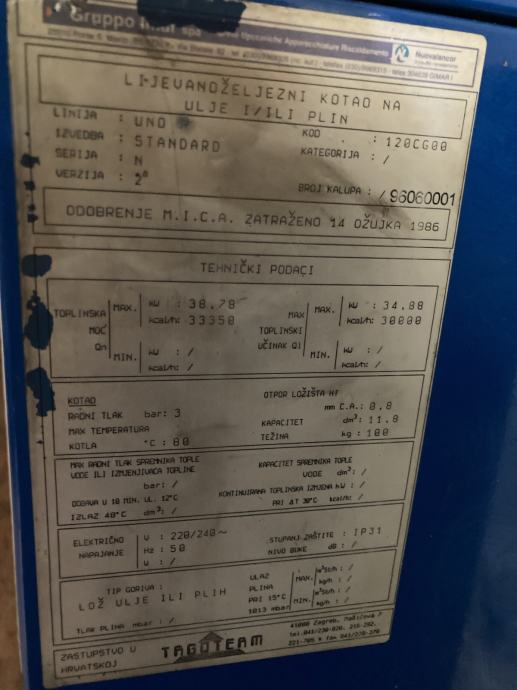 Gruppo Imar spa
Nuovalancor
LIJEVANOŽELJEZNI KOTAO NA
ULJE I/ILI PLIN
LINIJA : UNO KOD : 120CG00
IZVEDBA : STANDARD KATEGORIJA : /
SERIJA : N
VERZIJA : 2ª BROJ KALUPA : / 96060001
ODOBRENJE M.I.C.A. ZATRAŽENO 14 OŽUJKA 1986
TEHNIČKI PODACI
TOPLINSKA MOĆ Qn MAX. kW : 38.78
kcal/h: 33350
MIN. kW : /
kcal/h: /
MAX TOPLINSKI UČINAK Q1 MAX. kW : 34.88
kcal/h: 30000
MIN. kW : /
kcal/h: /
KOTAO OTPOR LOŽIŠTA H1
RADNI TLAK bar: 3 mm C.A.: 0,8
MAX TEMPERATURA KAPACITET dm³: 11.8
KOTLA °C : 80 TEŽINA kg : 100
MAX RADNI TLAK SPREMNIKA TOPLE KAPACITET SPREMNIKA TOPLE
VODE ILI IZMJENJIVAČA TOPLINE VODE dm³: /
bar: / KONTINUIRANA TOPLINSKA IZMJENA kW : /
DOBAVA U 10 MIN. UL. 12°C PRI ΔT 30°C kcal/h: /
IZLAZ 40°C dm³: /
ELEKTRIČNO NAPAJANJE V : 220/240~ STUPANJ ZAŠTITE : IP31
Hz : 50 NIVO BUKE dB : /
W : /
TIP GORIVA :
LOŽ ULJE ILI PLIN
TLAK PLINA mbar : /
ULAZ PLINA PRI 15°C 1013 mbar
MAX. m³St/h : /
kg/h : /
MIN. m³St/h : /
kg/h : /
ZASTUPSTVO U
HRVATSKOJ
TAGOTERM
41000 Zagreb,